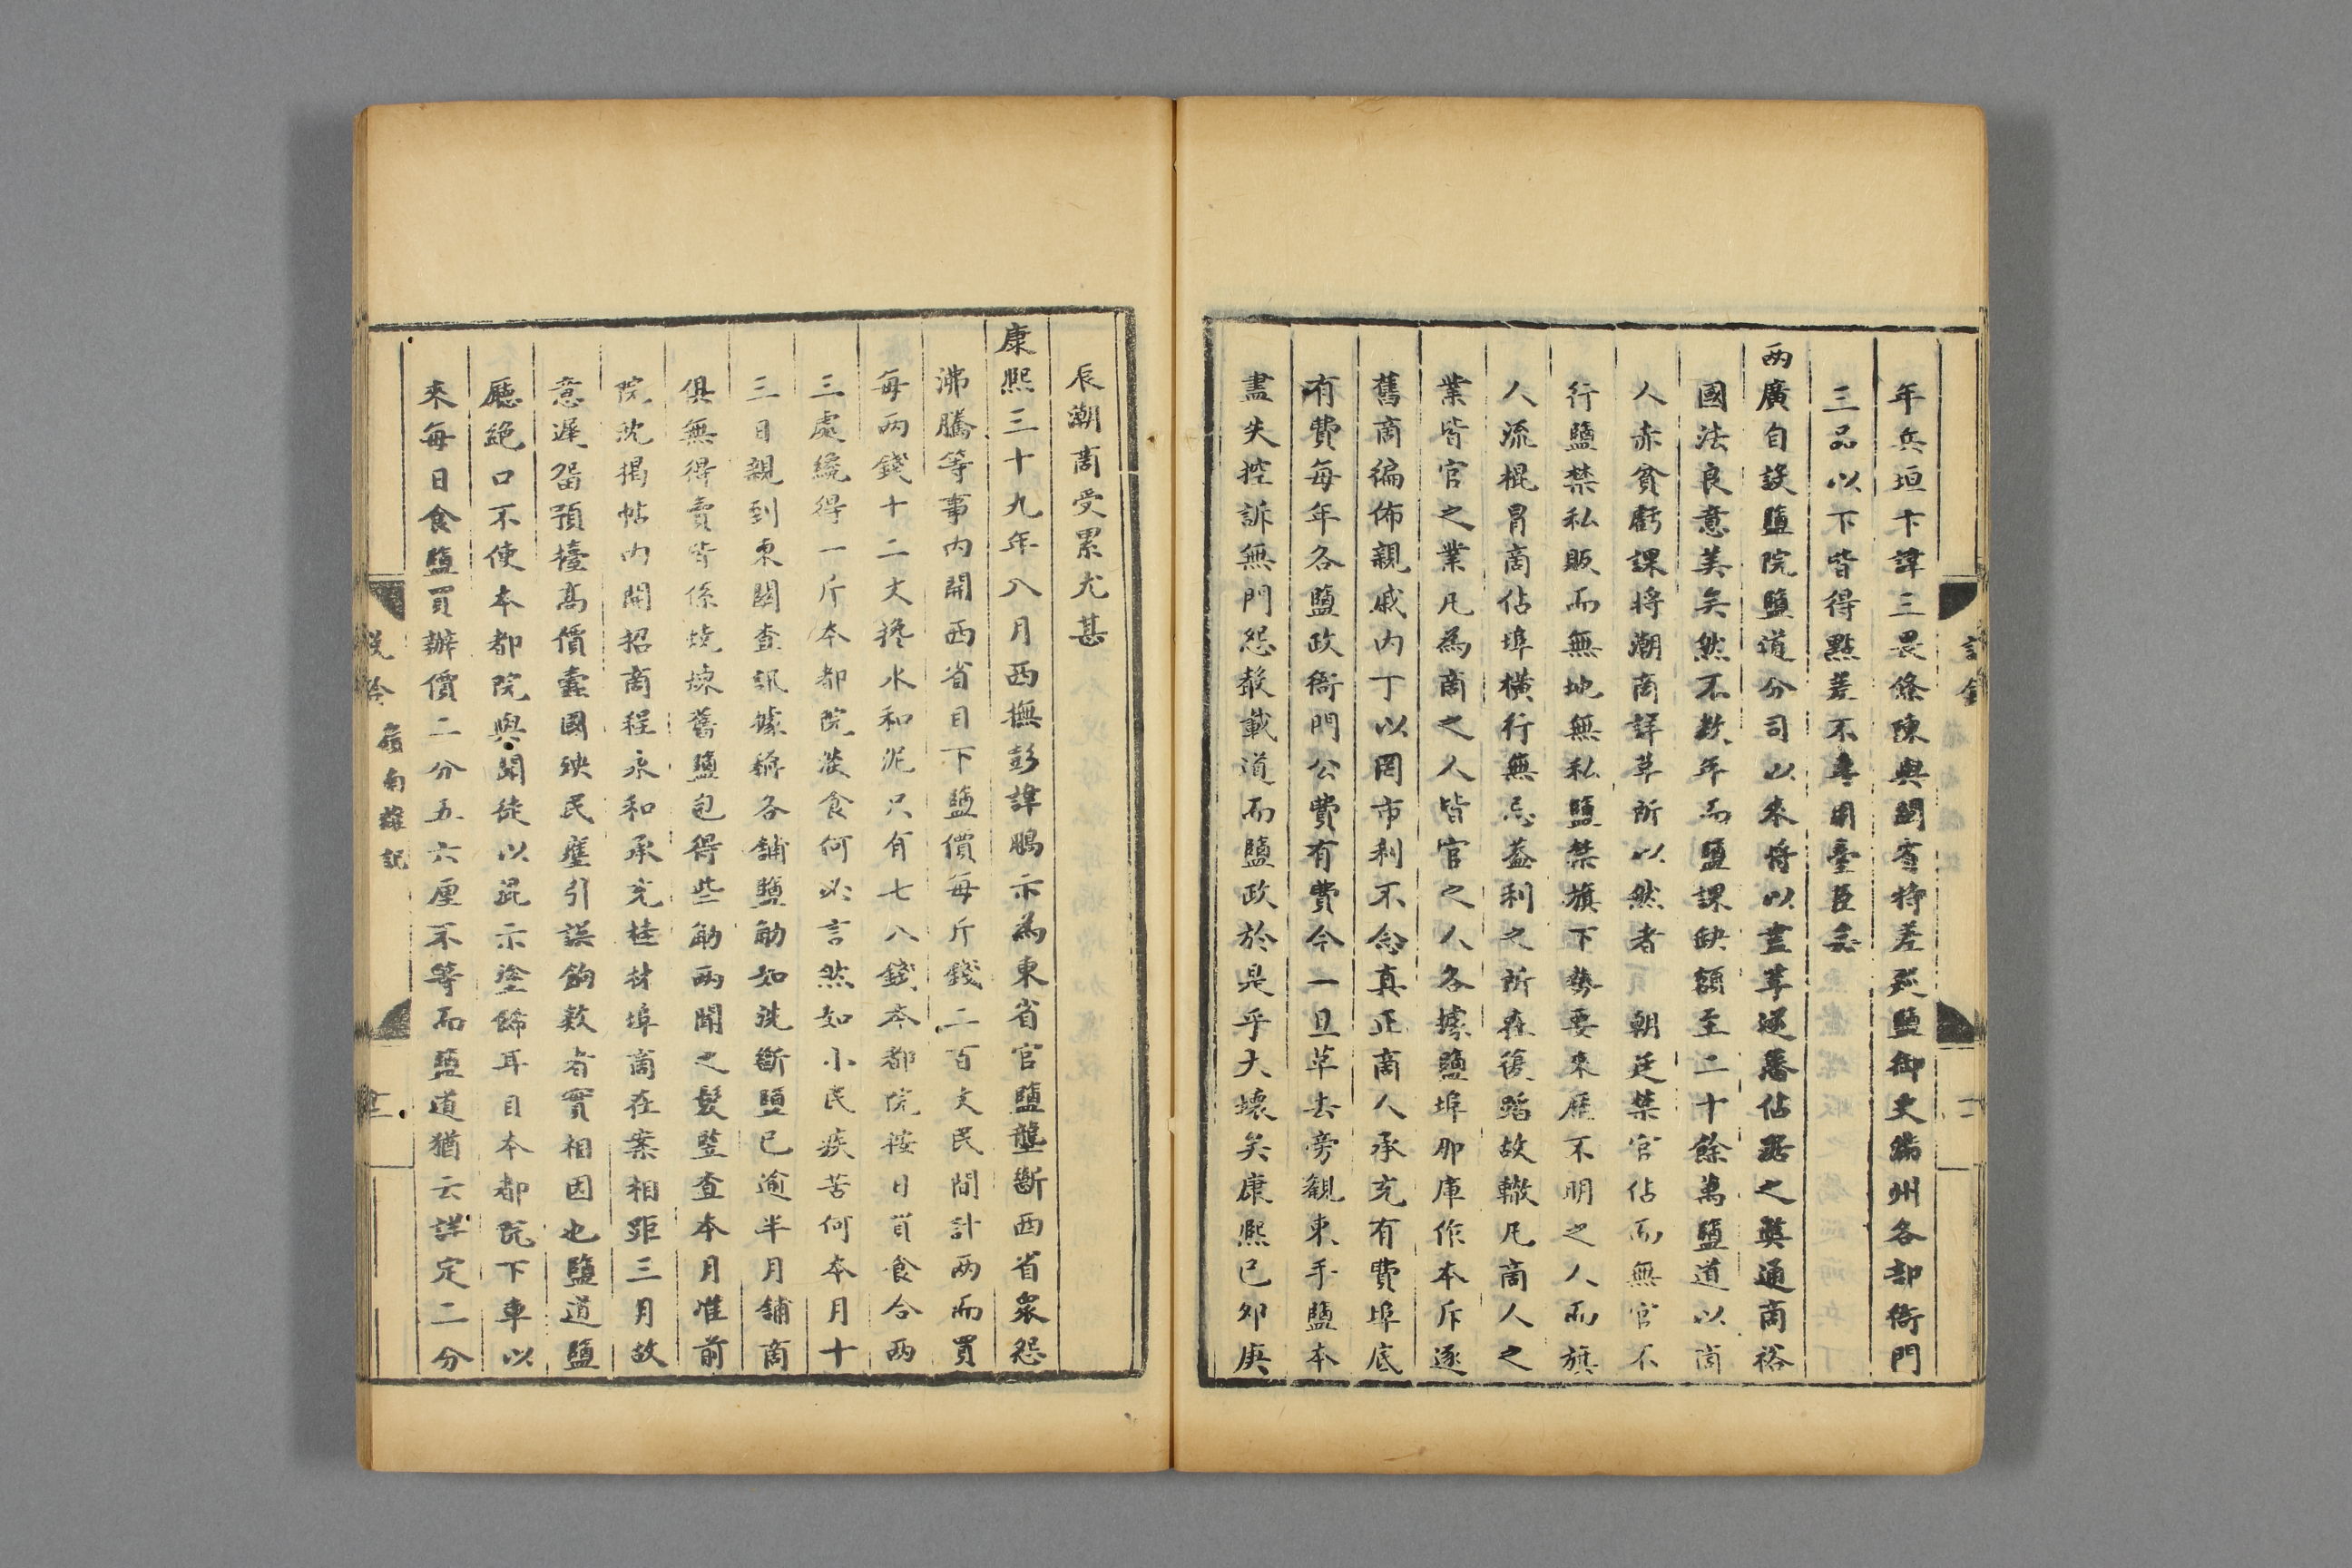 年兵垣卞諱三畏條陳與閩省特差巡鹽御史駐州各部衙門
三品以下皆得點差不專用臺臣矣
两廣自設鹽院鹽道分司以來將以盡革逆藩佔踞之獘通商裕
國法良意美矣然不数年而鹽課缺額至二十餘萬鹽道以商
人赤貧虧課将潮商詳革所以然者朝廷禁官佔而無官不
行鹽禁私販而無地無私鹽禁旗下勢要來歷不明之人而旗
人流棍冐商佔埠横行無忌葢利之所在復踏故轍凡商人之
業皆官之業凡為商之人皆官之人各據鹽埠那庫作本斥逐
舊商徧佈親戚内丁以罔市利不念真正商人承充有費埠底
有費每年各鹽政衙門公費有費今一旦革去旁觀束手鹽本
盡失控訴無門怨嗟載道而鹽政於是乎大壞矣康熙己夘庚
辰潮商受累尤甚
康熙三十九年八月西撫彭諱鵬示為東省官鹽壟斷西省衆怨
沸騰等事内開西省目下鹽價每斤錢二百文民間計两而買
每两錢十二文搀水和泥只有七八錢本都院按日買食合两
三處纔得一斤本都院淡食何必言然如小民疾苦何本月十
三日親到東關查訊據稱各舖鹽觔如洗斷鹽已逾半月舖商
俱無得賣皆係燒煉舊鹽包得些觔两聞之髮竪查本月惟前
院沈揭帖内開招商程永和承充桂林埠商在案相距三月故
意遲畱預擡高價蠹國殃民壅引誤餉欵有實相因也鹽道鹽
廳絶口不使本都院與聞徒以混示塗飾耳目本都院下車以
來每日食鹽買辦價二分五六厘不等而鹽道猶云詳定二分
説鈴
嶺南雜記